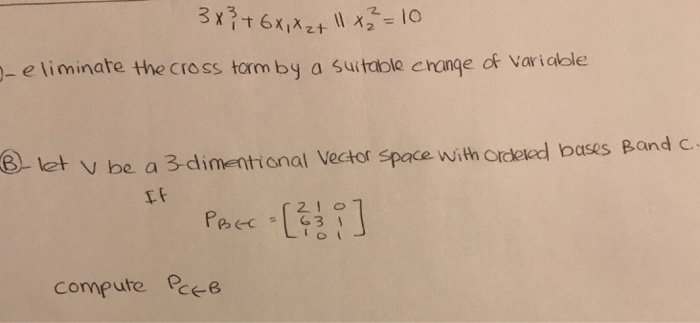 3x₁³ + 6x₁x₂ + 11 x₂² = 10
- eliminate the cross torm by a suitable change of variable
B - let V be a 3-dimentional Vector space with ordered bases B and C.
If
P B←C = [2 1 0
6 3 1
1 0 1]
compute P C←B